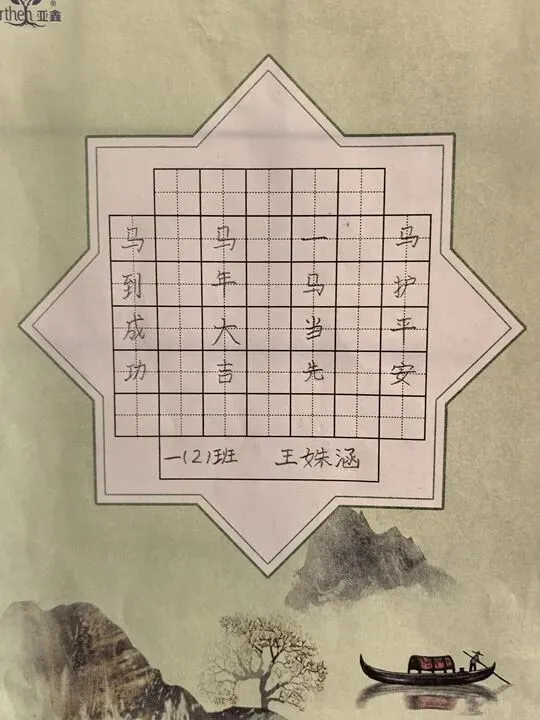 rthen 亚鑫
马到成功
马年大吉
一马当先
马护平安
一(2)班 王姝涵